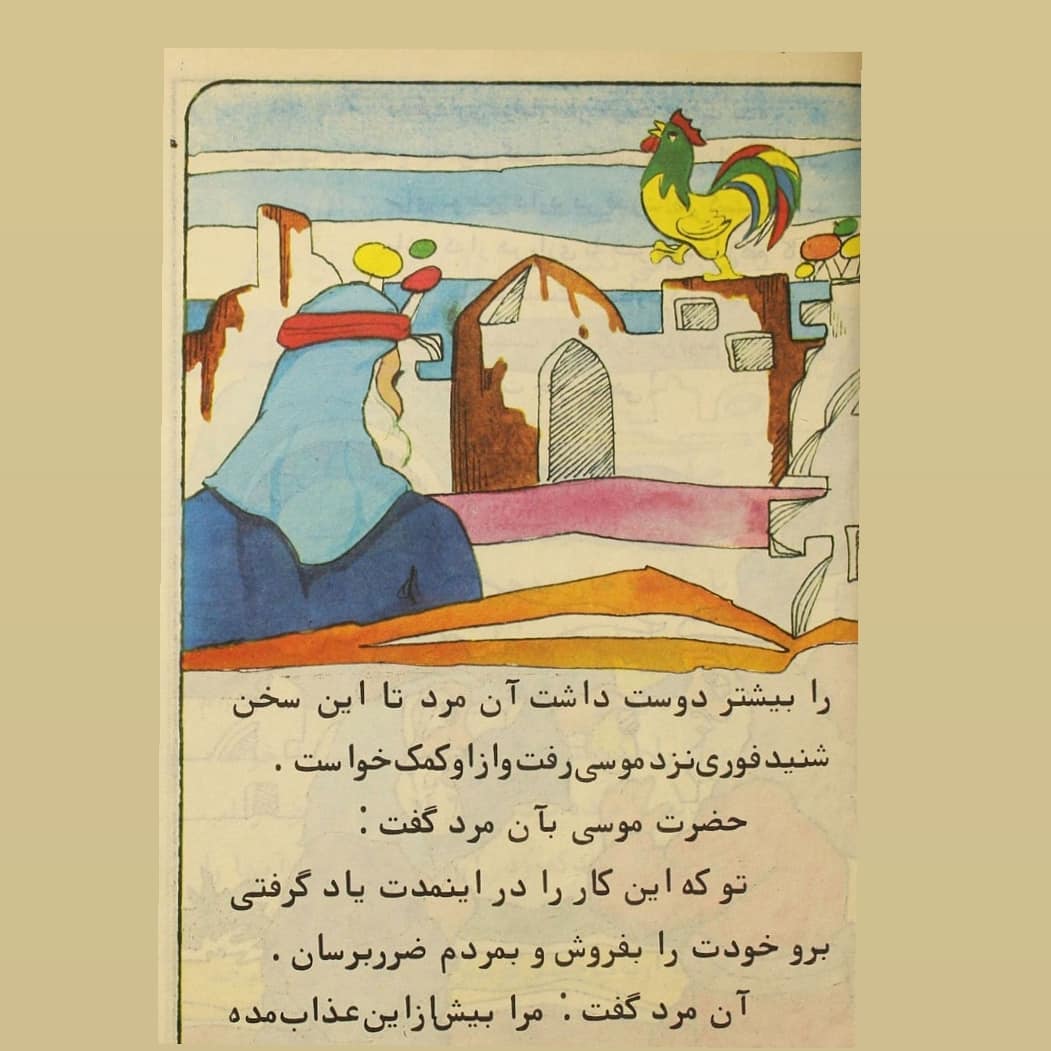 را بیشتر دوست داشت آن مرد تا این سخن
شنید فوری نزد موسی رفت و از او کمک خواست .
حضرت موسی بآن مرد گفت :
تو که این کار را در اینمدت یاد گرفتی
برو خودت را بفروش و بمردم ضرر برسان .
آن مرد گفت : مرا بیش از این عذاب مده